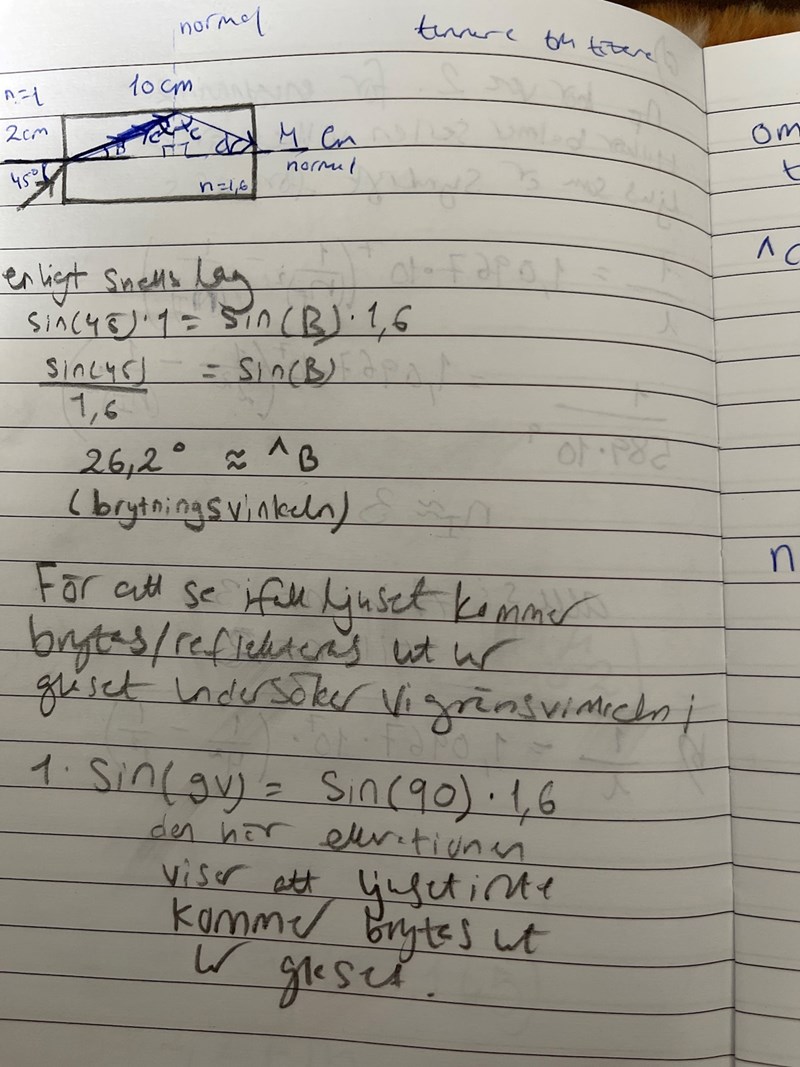 normal
n=1
10 cm
2cm
45°
n=1,6
normal
enligt Snells lag
sin(45)·1 = sin(B)·1,6
sin(45) = sin(B)
1,6
26,2° ≈ ^B
(brytningsvinkeln)
För att se ifall ljuset kommer
brytas/reflekteras ut ur
glaset undersöker vi gränsvinkeln;
1· sin(gv) = sin(90)·1,6
den här ekvationen
visar att ljuset inte
kommer brytas ut
ur glaset.
om
t
^C
n